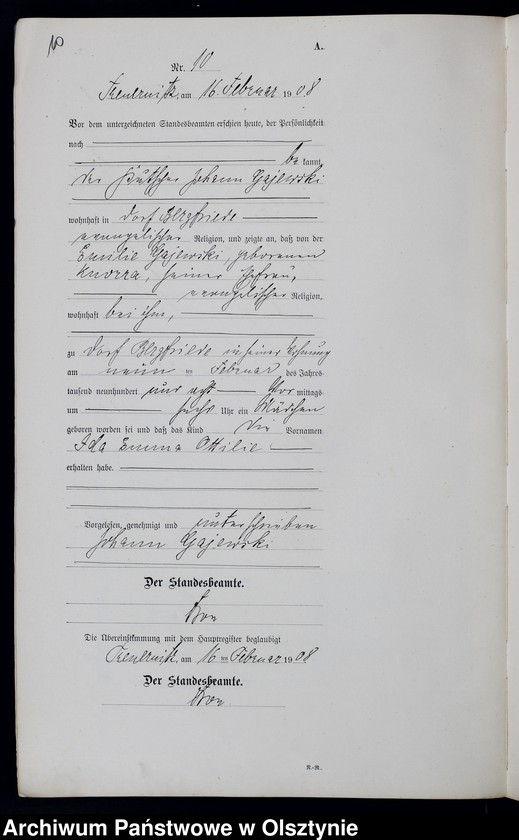 10
A.
Nr. 10
am 16. Februar 1908
Vor dem unterzeichneten Standesbeamten erschien heute, der Persönlichkeit
nach
be kannt,
der Johann Gajewski
wohnhaft in Dorf Bergfriede
evangelischer Religion, und zeigte an, daß von der
Emilie Gajewski, geborenen
Knorra, seiner Ehefrau,
evangelischer Religion,
wohnhaft bei ihm,
zu Dorf Bergfriede in seiner Wohnung
am neun ten Februar des Jahres
tausend neunhundert und acht Vor mittags
um sechs Uhr ein Mädchen
geboren worden sei und daß das Kind die Vornamen
Ida Emma Ottilie
erhalten habe.
Vorgelesen, genehmigt und unterschrieben
Johann Gajewski
Der Standesbeamte.
Die Übereinstimmung mit dem Hauptregister beglaubigt
am 16 ten Februar 1908
Der Standesbeamte.
R.-R.
Archiwum Państwowe w Olsztynie